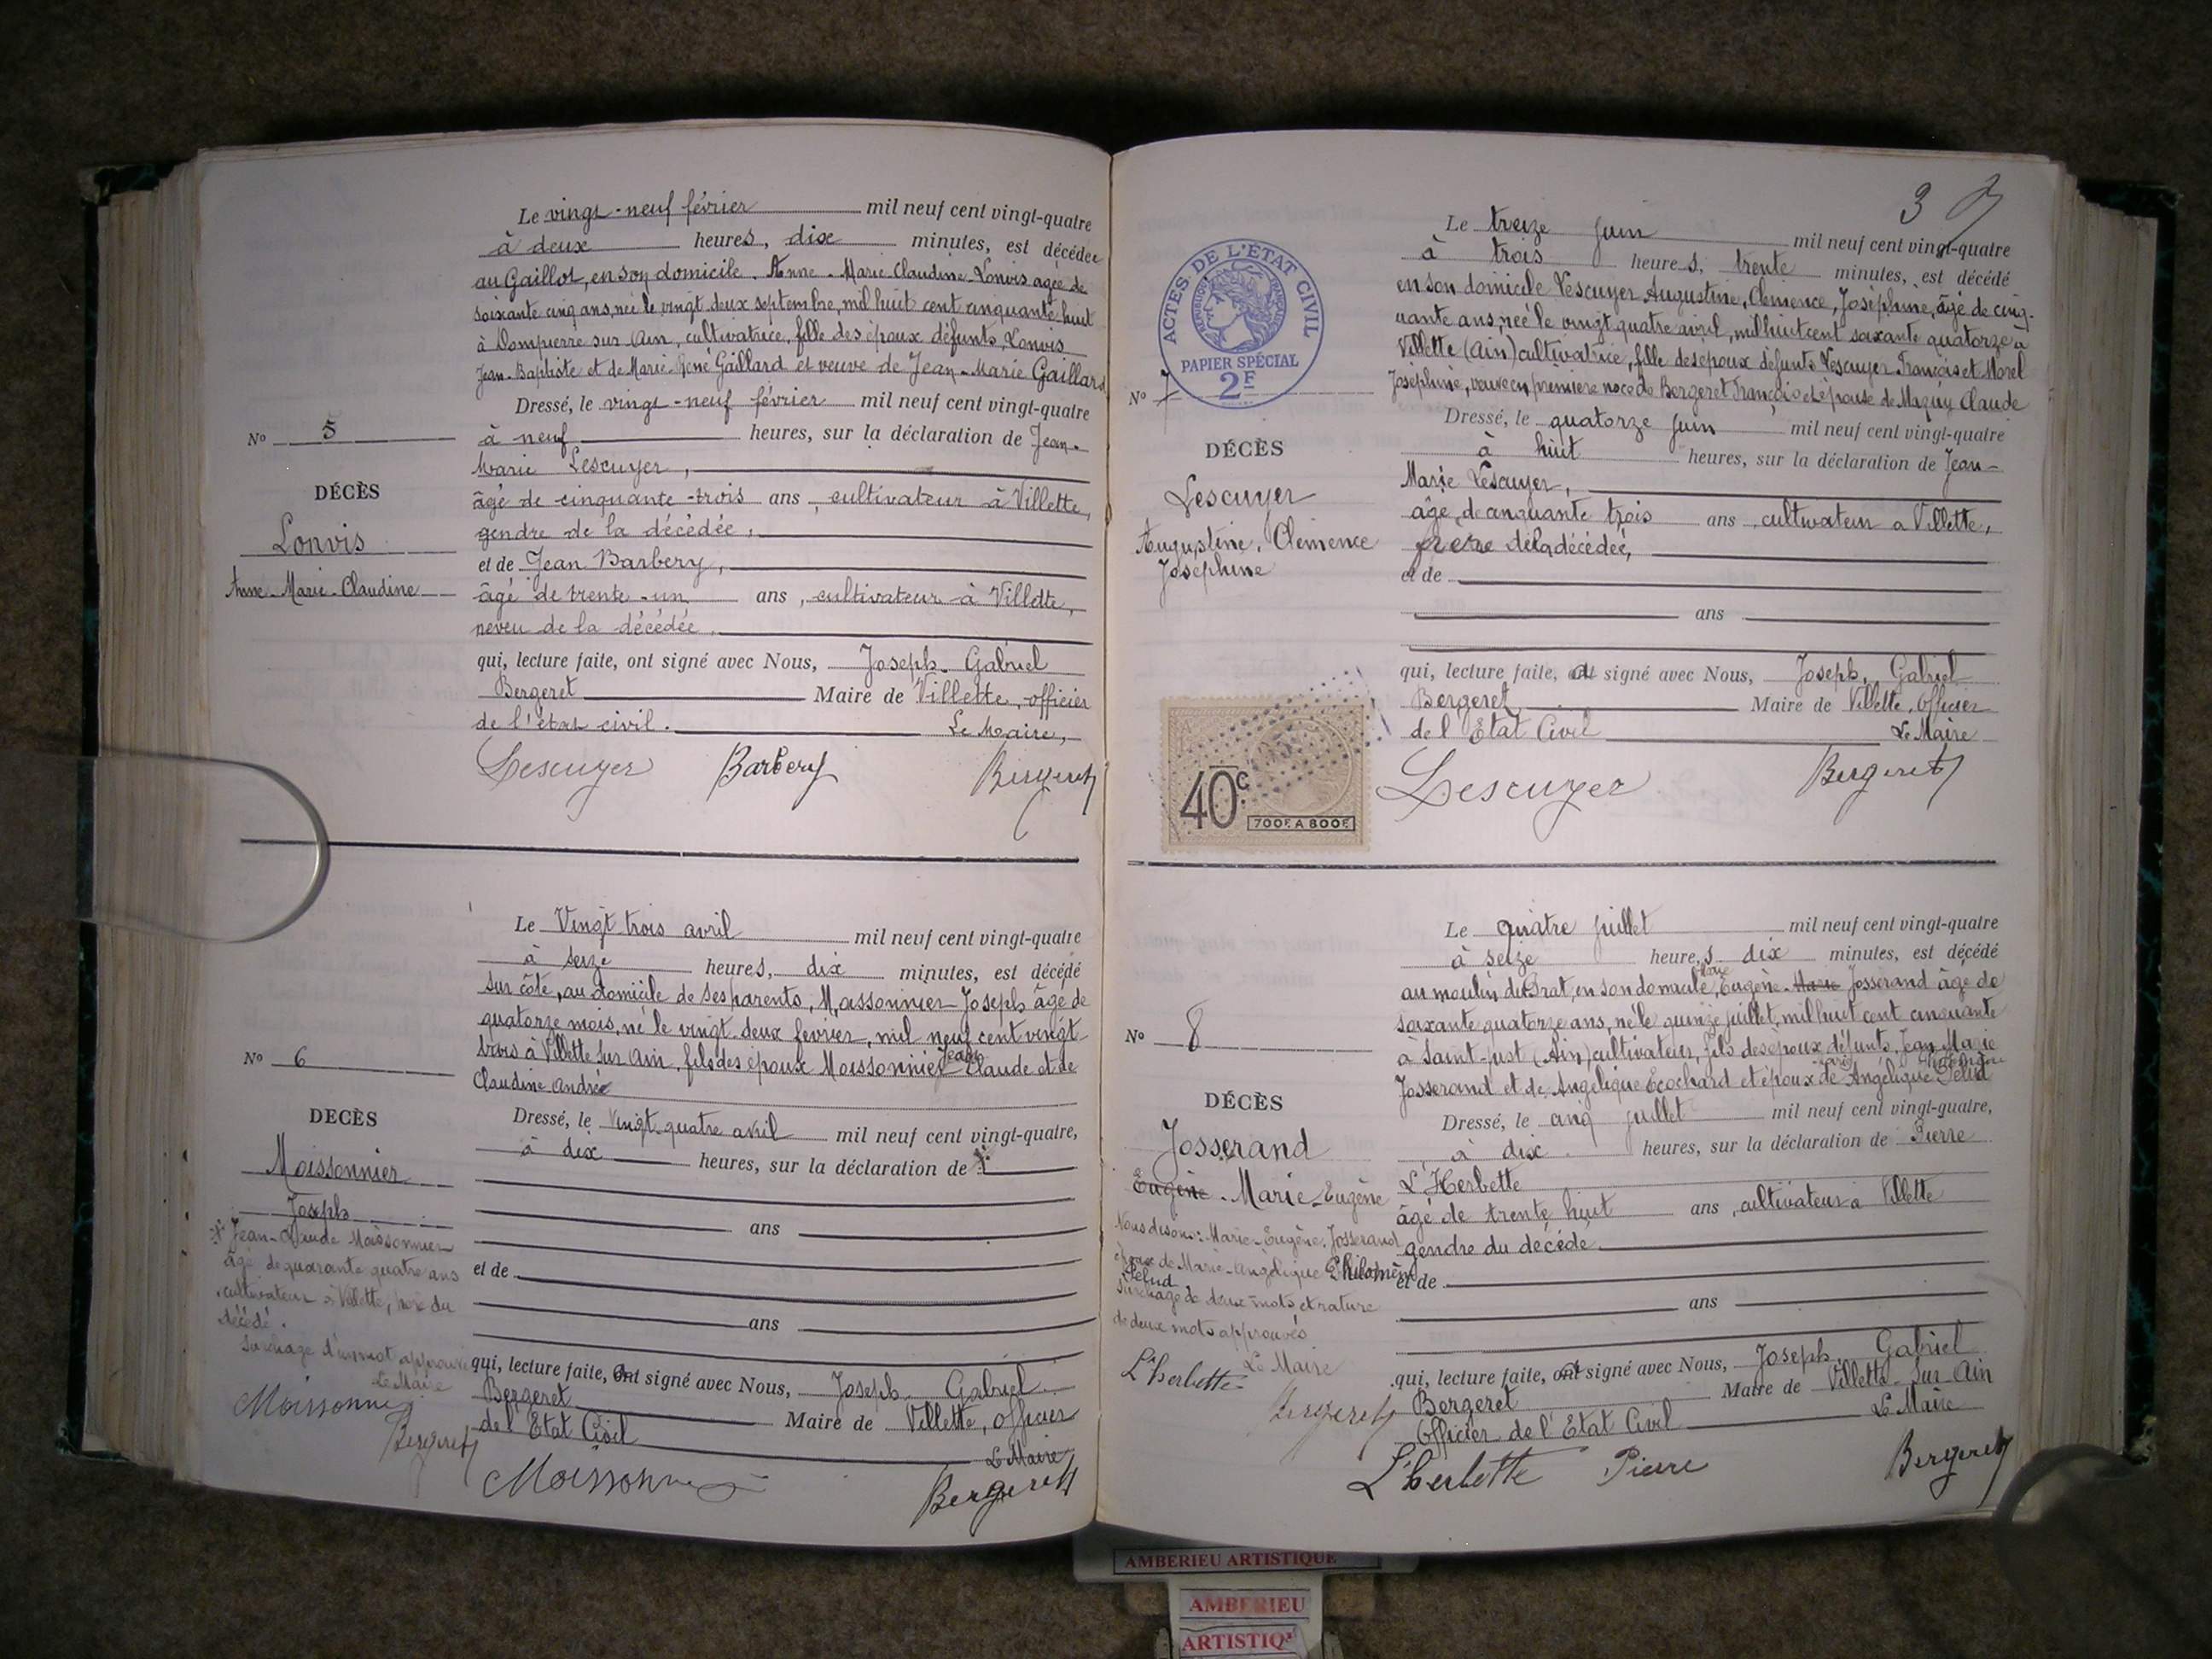 Le vingt-neuf février mil neuf cent vingt-quatre
à deux heures, dix minutes, est décédée
au Gaillot, en son domicile. Anne-Marie-Claudine Lonvis agée de
soixante cinq ans, née le vingt deux septembre, mil huit cent cinquante huit
à Dompierre sur Ain, cultivatrice, fille des époux défunts, Lonvis
Jean-Baptiste et de Marie-René Gaillard et veuve de Jean-Marie Gaillard
Dressé, le vingt-neuf février mil neuf cent vingt-quatre
à neuf heures, sur la déclaration de Jean-
Marie Lescuyer,
âgé de cinquante-trois ans, cultivateur à Villette,
gendre de la décédée,
et de Jean Barbery,
âgé de trente-un ans, cultivateur à Villette,
neveu de la décédée.
qui, lecture faite, ont signé avec Nous, Joseph Gabriel
Bergeret Maire de Villette, officier
de l'état civil. Le Maire,
Lescuyer Barbery Bergeret
No 5
DÉCÈS
Lonvis
Anne-Marie-Claudine
Le Vingt trois avril mil neuf cent vingt-quatre
à seize heures, dix minutes, est décédé
sur côte, au domicile de ses parents, Moissonnier Joseph âgé de
quatorze mois, né le vingt-deux fevrier, mil neuf cent vingt
trois à Villette sur Ain, fils des époux Moissonnier Jean Claude et de
Claudine Andrée
Dressé, le Vingt-quatre avril mil neuf cent vingt-quatre,
à dix heures, sur la déclaration de
ans
et de
ans
qui, lecture faite, Ont signé avec Nous, Joseph Gabriel
Bergeret Maire de Villette, officier
de l'Etat Civil
Le Maire
Moissonnier Bergeret
No 6
DECÈS
Moissonnier
Joseph
Jean-Claude Moissonnier
âgé de quarante quatre ans
cultivateur à Villette, père du
décédé.
Surchage d'un mot approuvé
Le Maire
Moissonnier
Bergeret
3
Le treize juin mil neuf cent vingt-quatre
à trois heures, trente minutes, est décédé
en son domicile Lescuyer Augustine, Clémence, Joséphine, âgé de cinq-
uante ans, née le vingt quatre avril, mil huit cent soixante quatorze à
Villette (Ain) cultivatrice, fille des époux défunts Lescuyer François et Morel
Joséphine, veuve en première noce de Bergeret François et épouse de Maguy Claude
Dressé, le quatorze juin mil neuf cent vingt-quatre
à huit heures, sur la déclaration de Jean-
Marie Lescuyer,
âgé de cinquante trois ans, cultivateur a Villette,
frère de la décédée,
et de
ans
qui, lecture faite, a signé avec Nous, Joseph, Gabriel
Bergeret Maire de Villette, Officier
de l'Etat Civil Le Maire
Lescuyer Bergeret
ACTES DE L'ÉTAT CIVIL
RÉPUBLIQUE FRANÇAISE
PAPIER SPÉCIAL
2F
No 7
DÉCÈS
Lescuyer
Augustine, Clémence
Joséphine
40c
700F A 800F
Le quatre juillet mil neuf cent vingt-quatre
à seize heures dix minutes, est décédé
au moulin du Prat, en son domicile, Marie Eugène Marie Josserand âgé de
soixante quatorze ans, né le quinze juillet, mil huit cent cinquante
à Saint-just (Ain) cultivateur, fils des époux défunts, Jean Marie
Josserand et de Angélique Ecochard et époux de Marie Angélique Philomène Pelud
Dressé, le cinq juillet mil neuf cent vingt-quatre,
à dix heures, sur la déclaration de Pierre
L'Herbette
âgé de trente huit ans, cultivateur à Villette
gendre du décédé
et de
ans
qui, lecture faite, a signé avec Nous, Joseph, Gabriel
Bergeret Maire de Villette-Sur-Ain
Officier de l'Etat Civil Le Maire
L'herbette Pierre Bergeret
No 8
DÉCÈS
Josserand
Eugène Marie-Eugène
Nous disons: Marie-Eugène Josserand
époux de Marie-Angélique Philomène
Pelud
Surchage de deux mots et rature
de deux mots approuvés
Le Maire
L'herbette
Bergeret
AMBERIEU ARTISTIQUE
AMBERIEU
ARTISTIQ